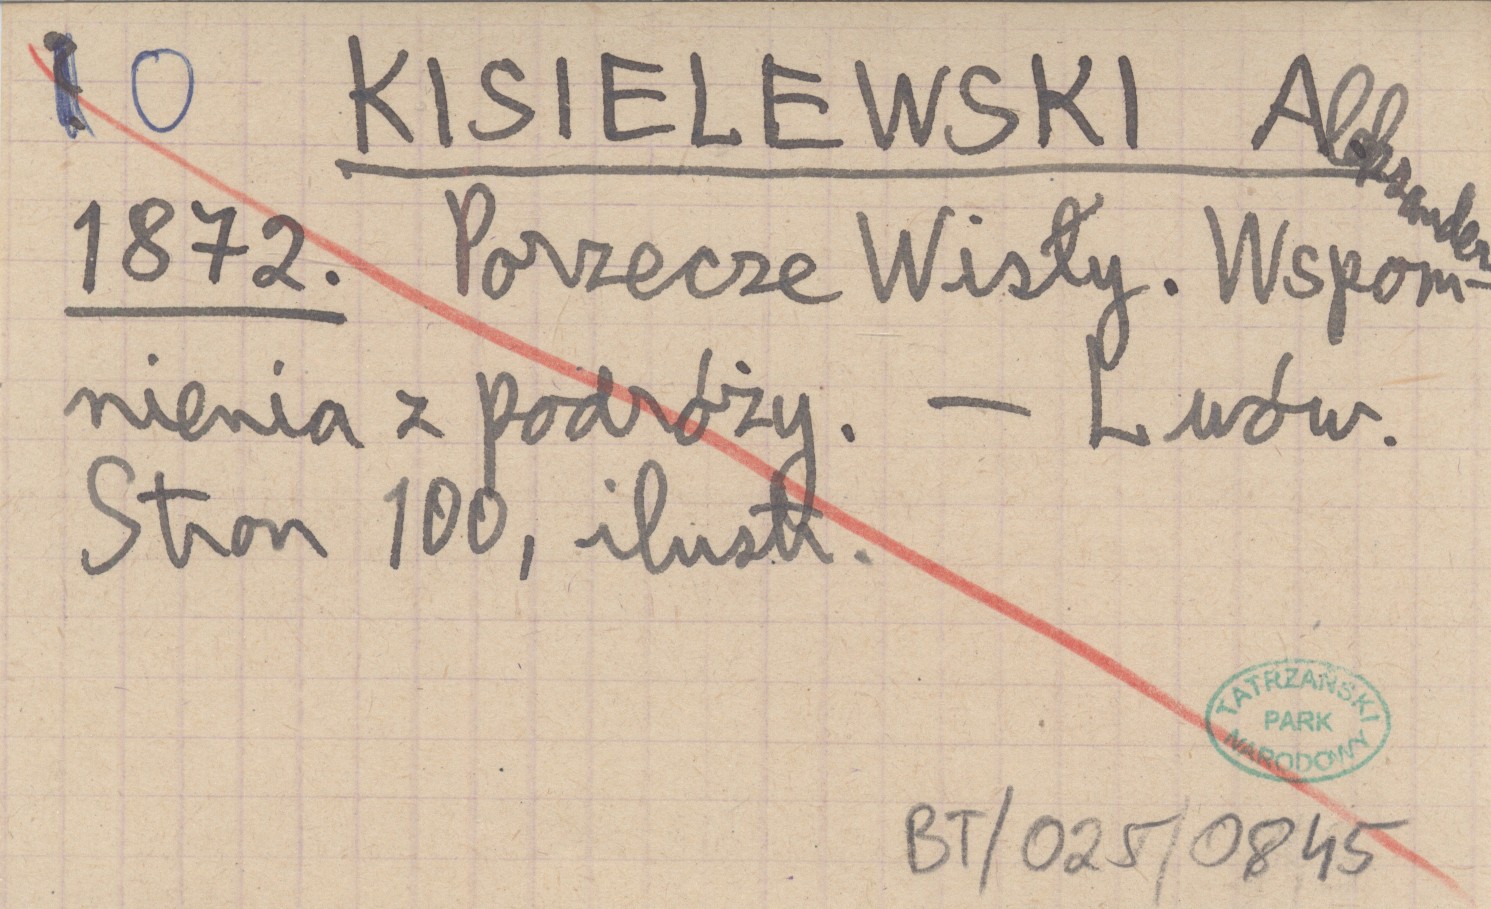 O KISIELEWSKI Aleksander
1872. Porzecze Wisły. Wspom-
nienia z podróży. — Lwów.
Stron 100, ilustr.
TATRZAŃSKI
PARK
NARODOWY
BT/025/0845